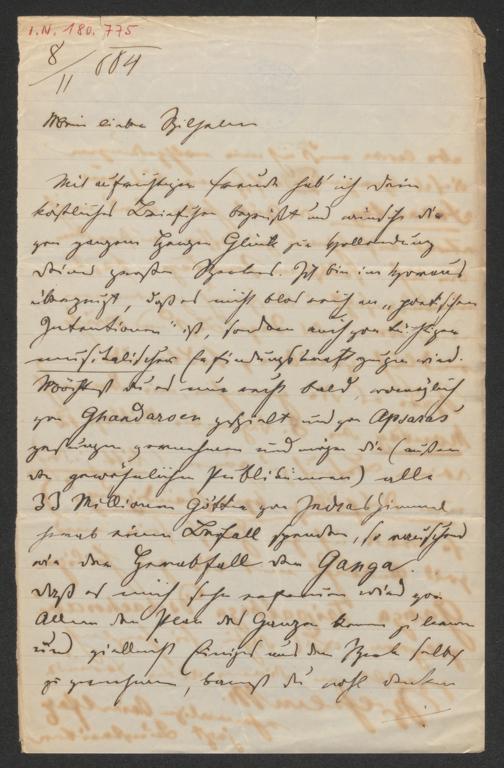 I.N. 180.775
8/11 884
Mein lieber Wilhelm
Mit aufrichtiger Freude hab' ich Dein
köstliches Briefchen begrüßt und wünsche Dir
von ganzem Herzen Glück zur Vollendung
Deines großen Werkes. Ich bin im Voraus
überzeugt, daß es nicht blos reich an „poetischen
Intentionen" ist, sondern auch von tüchtiger
musikalischer Erfindungskraft zeugen wird.
Möchtest du es nur recht bald, womöglich
von Ghandarven gespielt und von Apsaras
gesungen vernehmen und mögen dir (außer
dem gewöhnlichen Publikum) alle
33 Millionen Götter von Indras Himmel
herab einen Beifall spenden, so rauschend
wie der Herabfall der Ganga.
Daß es mich sehr erfreuen wird vor
Allem den Plan des Ganzen kennen zu lernen
und vielleicht Einiges aus dem Werk selbst
zu vernehmen, kannst du wohl denken